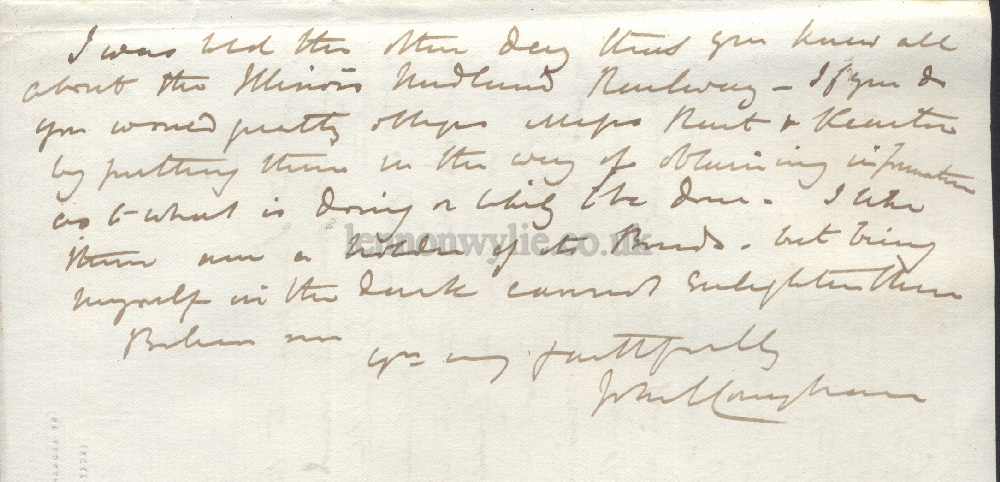 I was told the other day that you knew all
about the Illinois Midland Railway – If you do
you would greatly oblige Messrs &
by putting them in the way of obtaining information
as to what is doing or likely to be done. I like
them am a holder of its Bonds. but being
myself in the dark cannot enlighten them
Believe me
yrs very faithfully
John
lennonwylie.co.uk